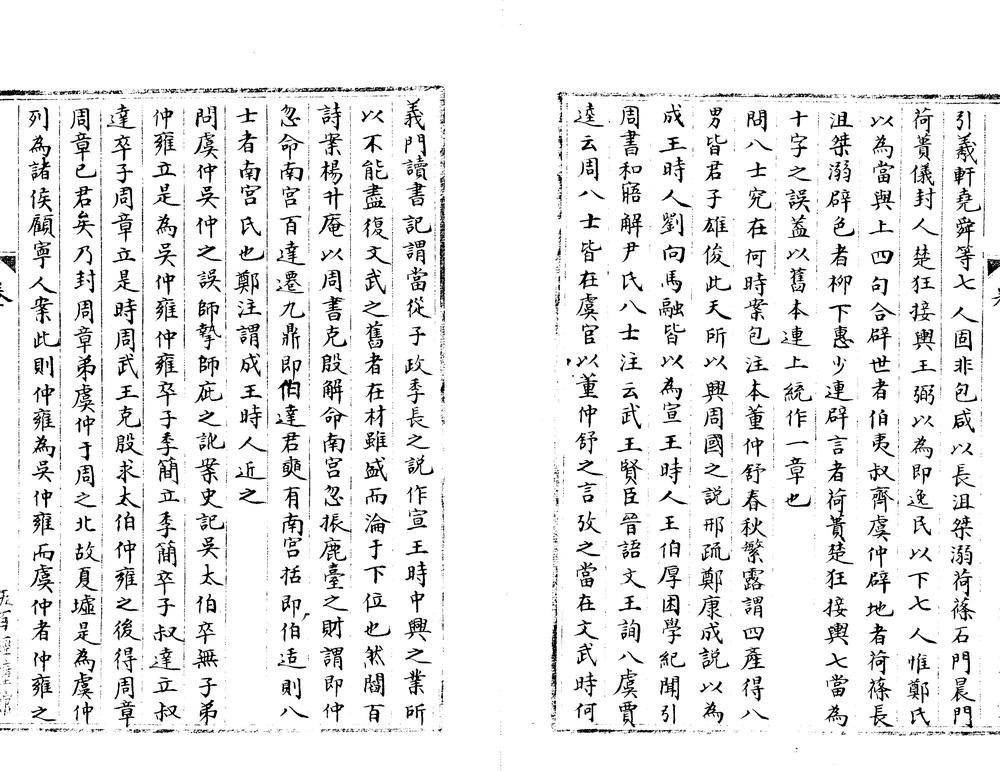 引羲軒堯舜等七人固非包咸以長沮桀溺荷蓧石門晨門
荷蕢儀封人楚狂接輿王弼以為即逸民以下七人惟鄭氏
以為當與上四句合辟世者伯夷叔齊虞仲辟地者荷蓧長
沮桀溺辟色者柳下惠少連辟言者荷蕢楚狂接輿七當為
十字之誤葢以舊本連上統作一章也
問八士究在何時案包注本董仲舒春秋繁露謂四產得八
男皆君子雄俊此天所以興周國之說邢疏鄭康成說以為
成王時人劉向馬融皆以為宣王時人王伯厚困學紀聞引
周書和寤解尹氏八士注云武王賢臣晉語文王詢八虞賈
逵云周八士皆在虞官以董仲舒之言攷之當在文武時何
義門讀書記謂當從子政季長之說作宣王時中興之業所
以不能盡復文武之舊者在材雖盛而淪于下位也然閻百
詩案楊升庵以周書克殷解命南宮忽振鹿臺之財謂即仲
忽命南宮百達遷九鼎即伯達君奭有南宮括即伯适則八
士者南宮氏也鄭注謂成王時人近之
問虞仲吳仲之誤師摯師庇之訛案史記吳太伯卒無子弟
仲雍立是為吳仲雍仲雍卒子季簡立季簡卒子叔達立叔
達卒子周章立是時周武王克殷求太伯仲雍之後得周章
周章已君矣乃封周章弟虞仲于周之北故夏墟是為虞仲
列為諸侯顧寧人案此則仲雍為吳仲雍而虞仲者仲雍之